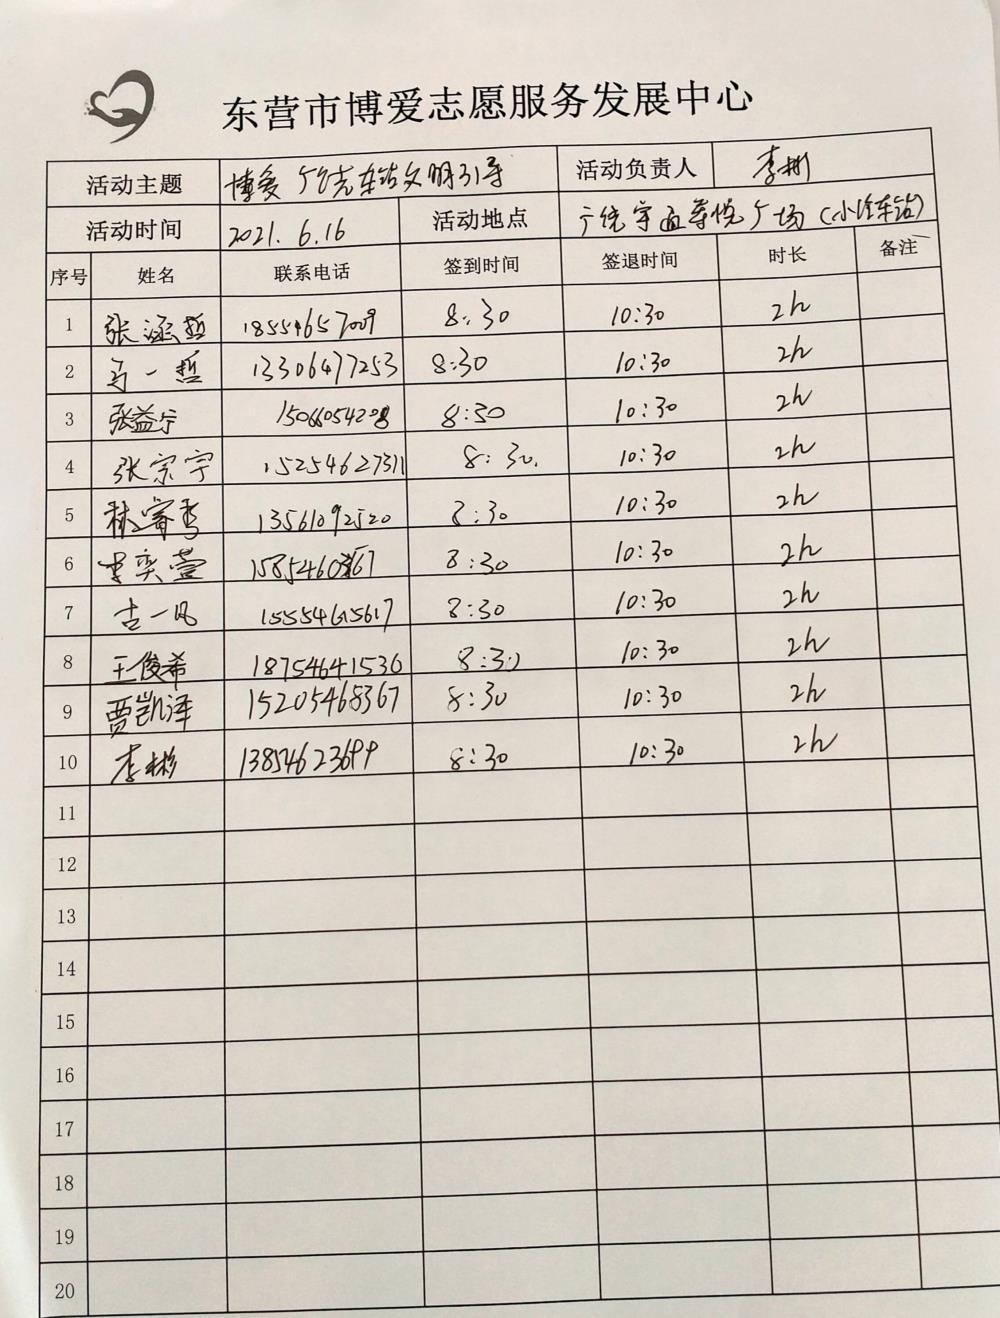 东营市博爱志愿服务发展中心
活动主题 博爱 公交车站文明引导 活动负责人 李彬
活动时间 2021.6.16 活动地点 广场(小汽车站)
序号 姓名 联系电话 签到时间 签退时间 时长 备注
1 张涵哲 18554657009 8:30 10:30 2h
2 马一哲 13306477253 8:30 10:30 2h
3 张益宁 15066054208 8:30 10:30 2h
4 张宗宇 15254627311 8:30. 10:30 2h
5 林睿 13561092520 8:30 10:30 2h
6 李奕萱 8:30 10:30 2h
7 古一凡 15554615617 8:30 10:30 2h
8 王俊希 18754641536 8:30 10:30 2h
9 贾凯泽 15205468367 8:30 10:30 2h
10 李彬 13854623699 8:30 10:30 2h
11
12
13
14
15
16
17
18
19
20